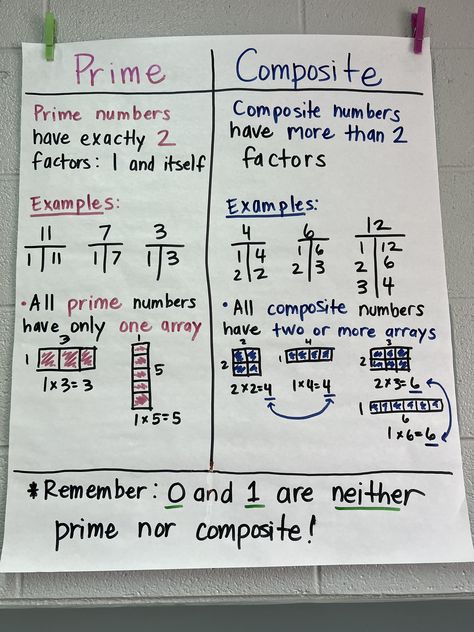 Prime
Prime numbers
have exactly 2
factors: 1 and itself
Examples:
11
1 11
7
1 7
3
1 3
• All prime numbers
have only one array
3
1
1 x 3 = 3
1
5
1 x 5 = 5
Composite
Composite numbers
have more than 2
factors
Examples:
4
1 4
2 2
6
1 6
2 3
12
1 12
2 6
3 4
• All composite numbers
have two or more arrays
2
2
2 x 2 = 4
4
1
1 x 4 = 4
3
2
2 x 3 = 6
1
6
1 x 6 = 6
* Remember: 0 and 1 are neither
prime nor composite!